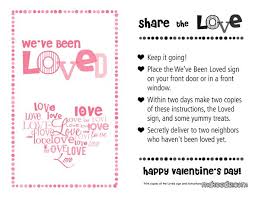 we've been
LOVED
love
love love
love love
love
love
share the LOVE
Keep it going!
Place the We've Been Loved sign
on your front door or in a front
window.
Within two days make two copies
of these instructions, the Loved
sign, and some yummy treats.
Secretly deliver to two neighbors
who haven't been loved yet.
happy valentine's day!